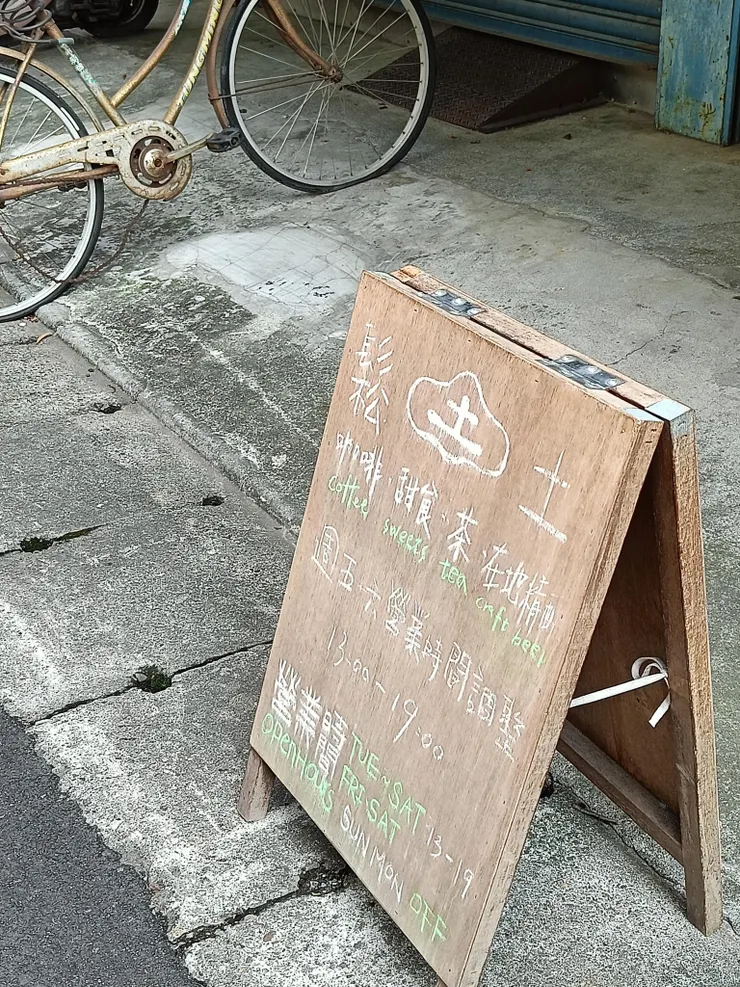 彭
松
土
土
咖啡·甜食·茶·在地精釀
coffee sweets tea craft beer
週五-六營業時間調整
13:00-19:00
營業時間
OPENHOURS
TUE~SAT
FRI SAT 13-19
SUN MON OFF